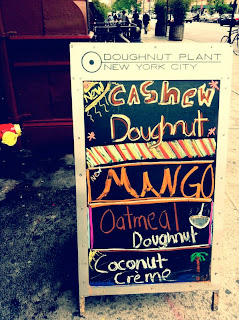 DOUGHNUT PLANT
NEW YORK CITY
NEW
CASHEW
Doughnut
NEW
MANGO
Oatmeal
Doughnut
Coconut
Crème